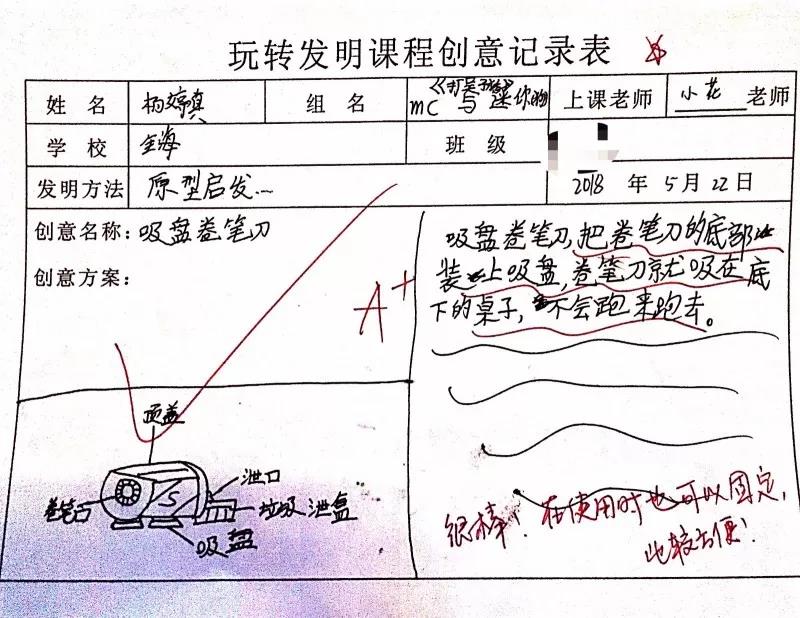 玩转发明课程创意记录表
姓 名 杨婷 组 名 mC 与迷你 上课老师 小花 老师
学 校 班 级
发明方法 原型启发... 2018 年 5 月 22 日
创意名称：吸盘卷笔刀
创意方案：
A+
吸盘卷笔刀，把卷笔刀的底部
装上吸盘，卷笔刀就吸在底
下的桌子，不会跑来跑去。
顶盖
泄口
卷笔口
垃圾泄盒
吸盘
很棒！在使用时也可以固定，
比较方便！